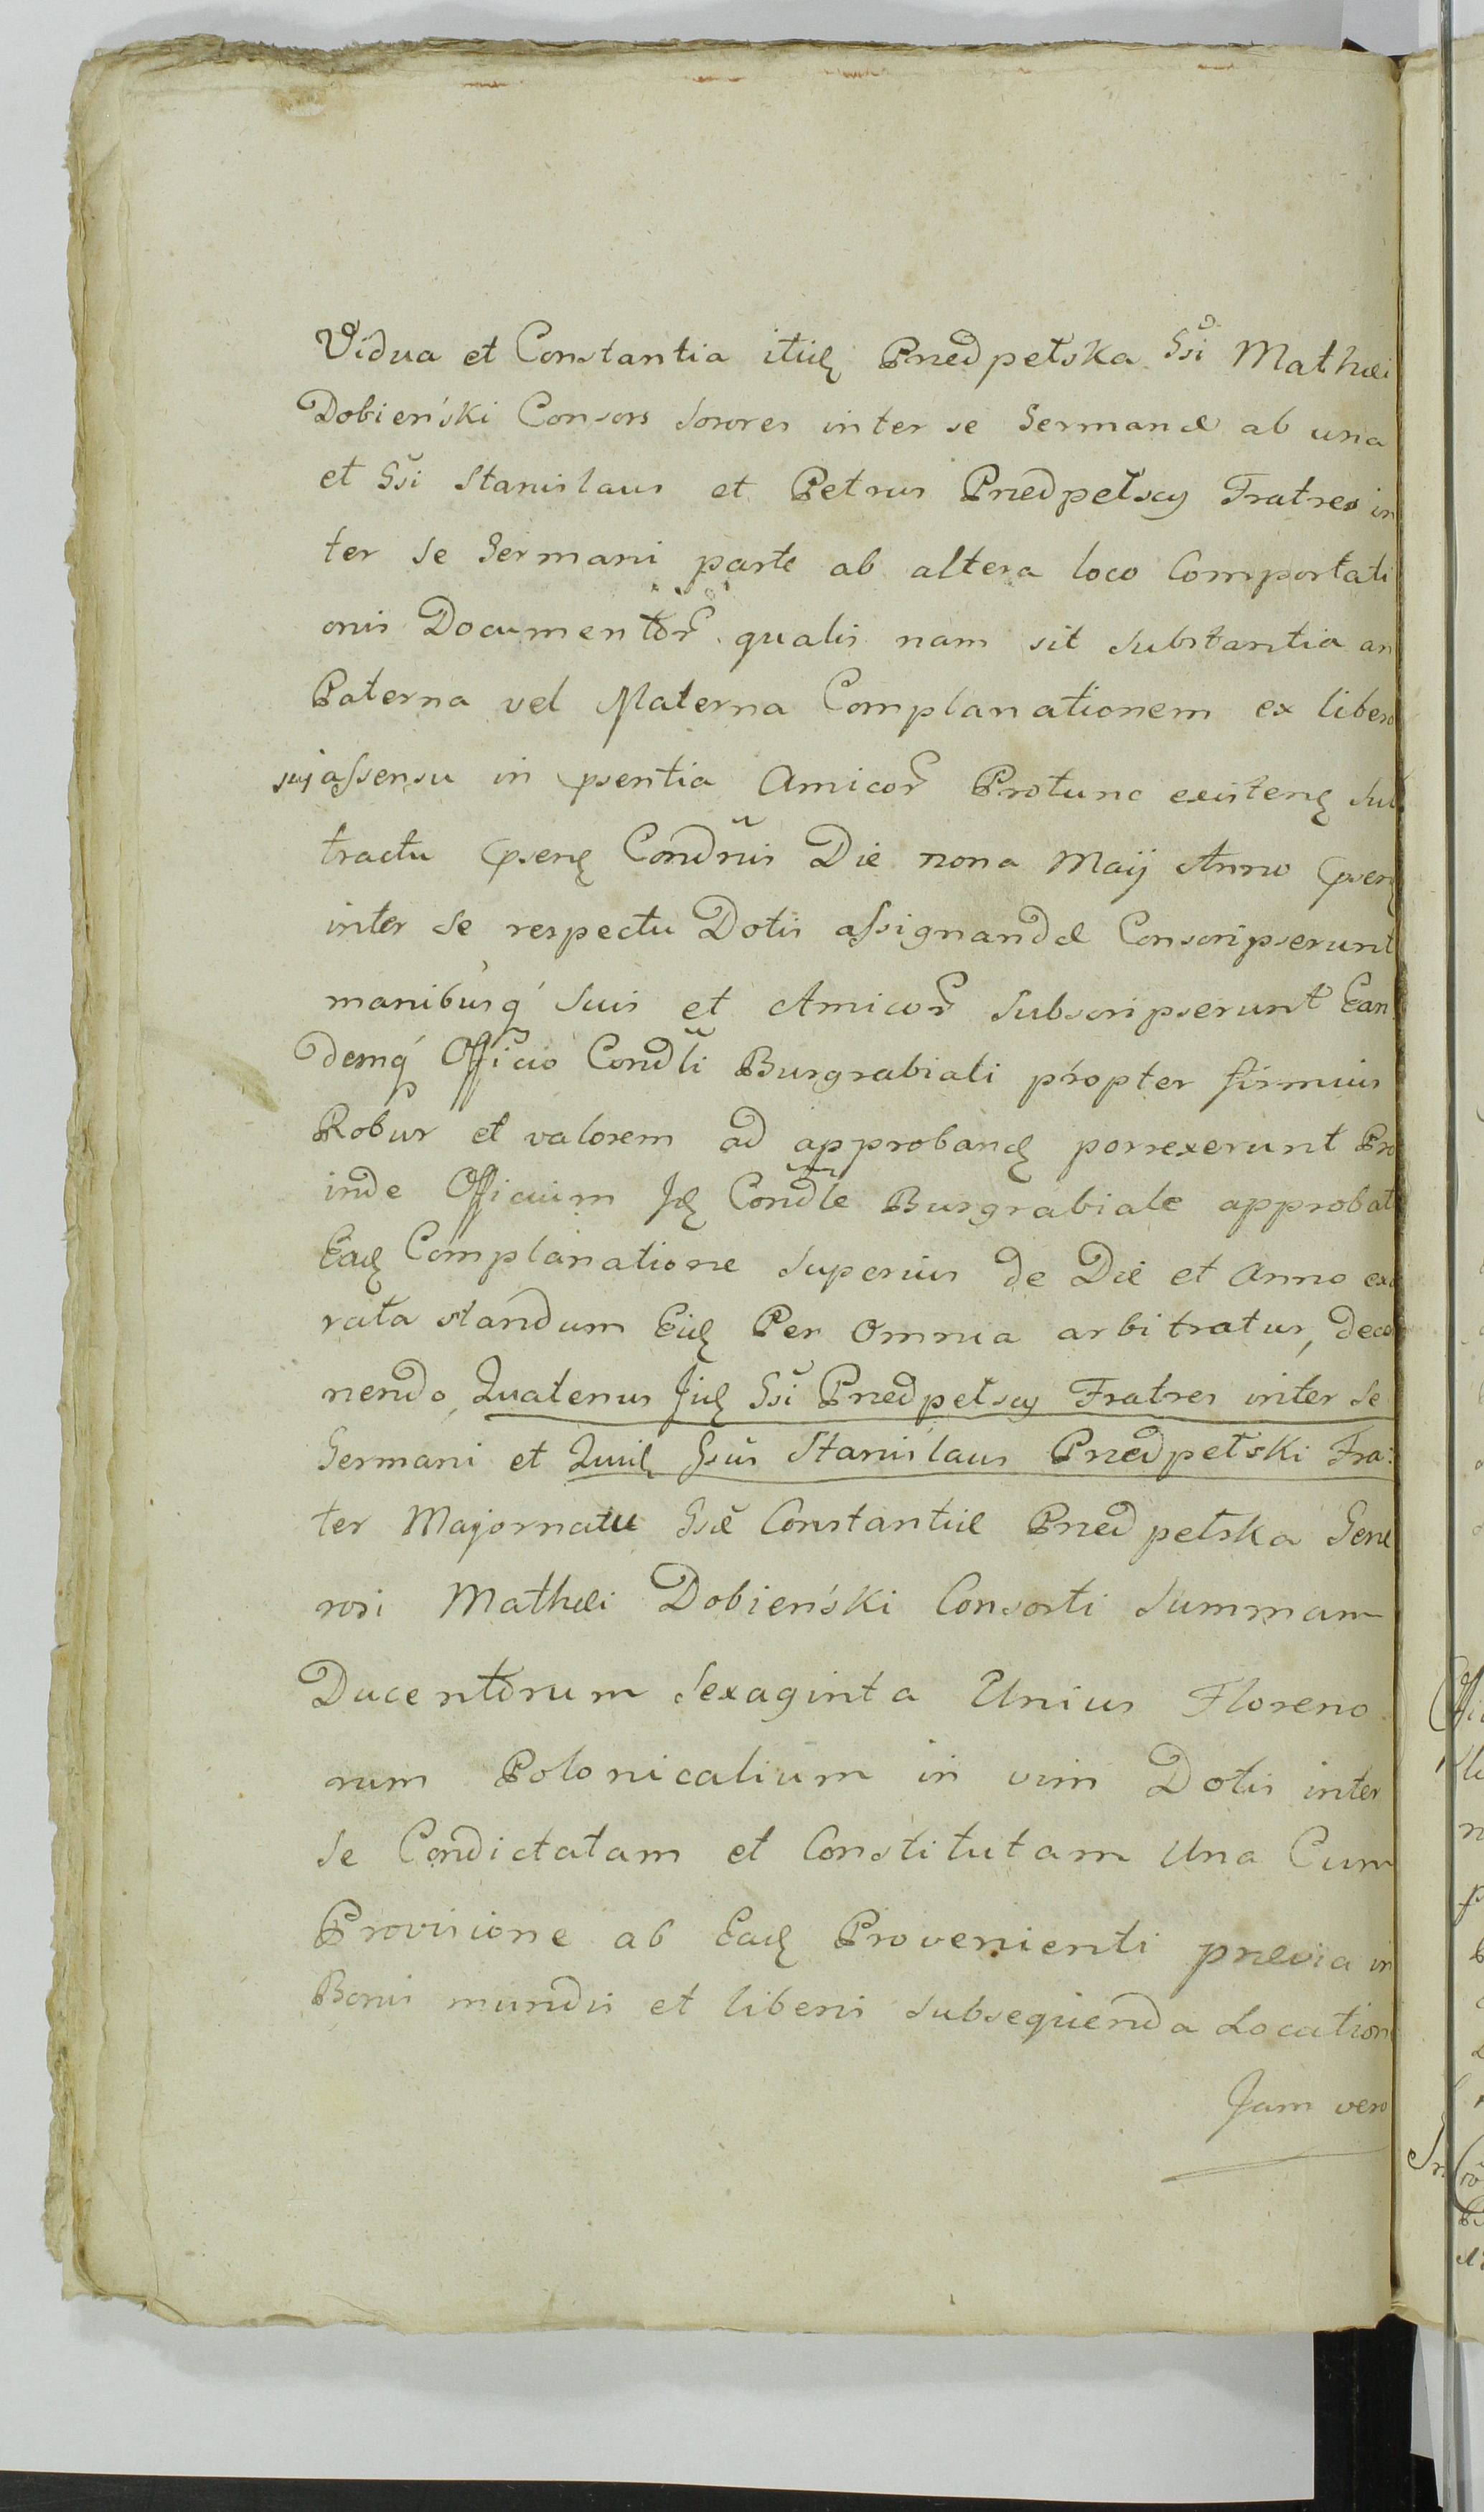 Vidua et Constantia itidę Przedpełska Gsi Mathæi
Dobieński Consors Sorores inter se Germanæ ab una
et Gsi Stanislaus et Petrus Przedpełscy Fratres in
ter se Germani parte ab altera loco Comportati
onis Documentor qualis nam sit Substantia an
Paterna vel Materna Complanationem ex libero
sui assensu in psentia Amicor Protunc existenę Sub
tractu psenę Condnis Die nona Maij Anno psenę
inter se respectu Dotis assignandæ Conscripserunt
manibusq' Suis et Amicor Subscripserunt Ean
demq' Officio Condli Burgrabiali propter firmius
Robur et valorem ad approbandę porrexerunt Pro
inde Officium Jdę Condle Burgrabiale approbat
Eadę Complanatione Superius de Die et Anno exa
rata standum Eidę Per Omnia arbitratur, decer
nendo, Quatenus Jidę Gsi Przedpełscy Fratres inter se
Germani et Gsus Stanislaus Przedpełski Fra:
ter Majornatu Gsæ Constantiæ Przedpełska Gene
rosi Mathæi Dobieński Consorti Summam
Ducentorum Sexaginta Unius Floreno
rum Polonicalium in vim Dotis inter
se Condictatam et Constitutam Una Cum
Provisione ab Eadę Provenienti prævia in
Bonis mundis et liberis subsequenda Locatione
Jam vero